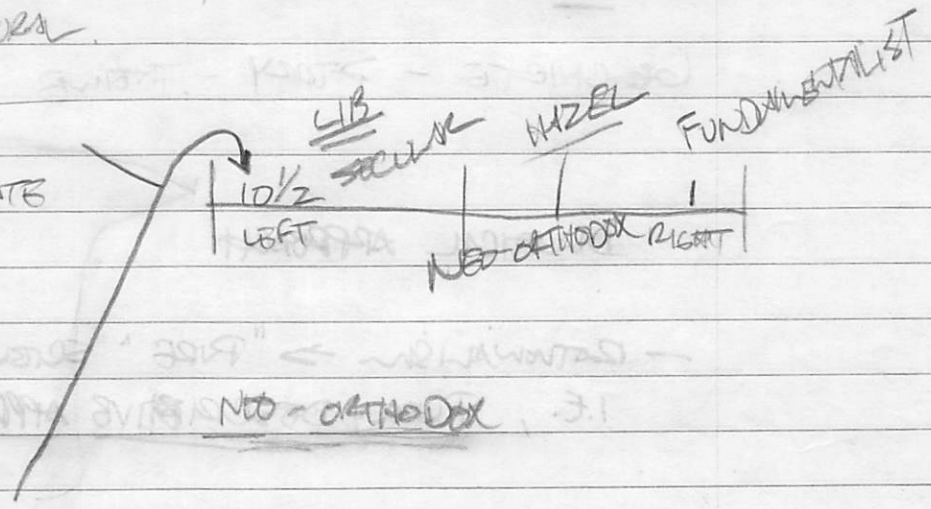 LIB
SECULAR
HAZEL
FUNDAMENTALIST
10 1/2
LEFT
NEO-ORTHODOX
RIGHT
NEO-ORTHODOX